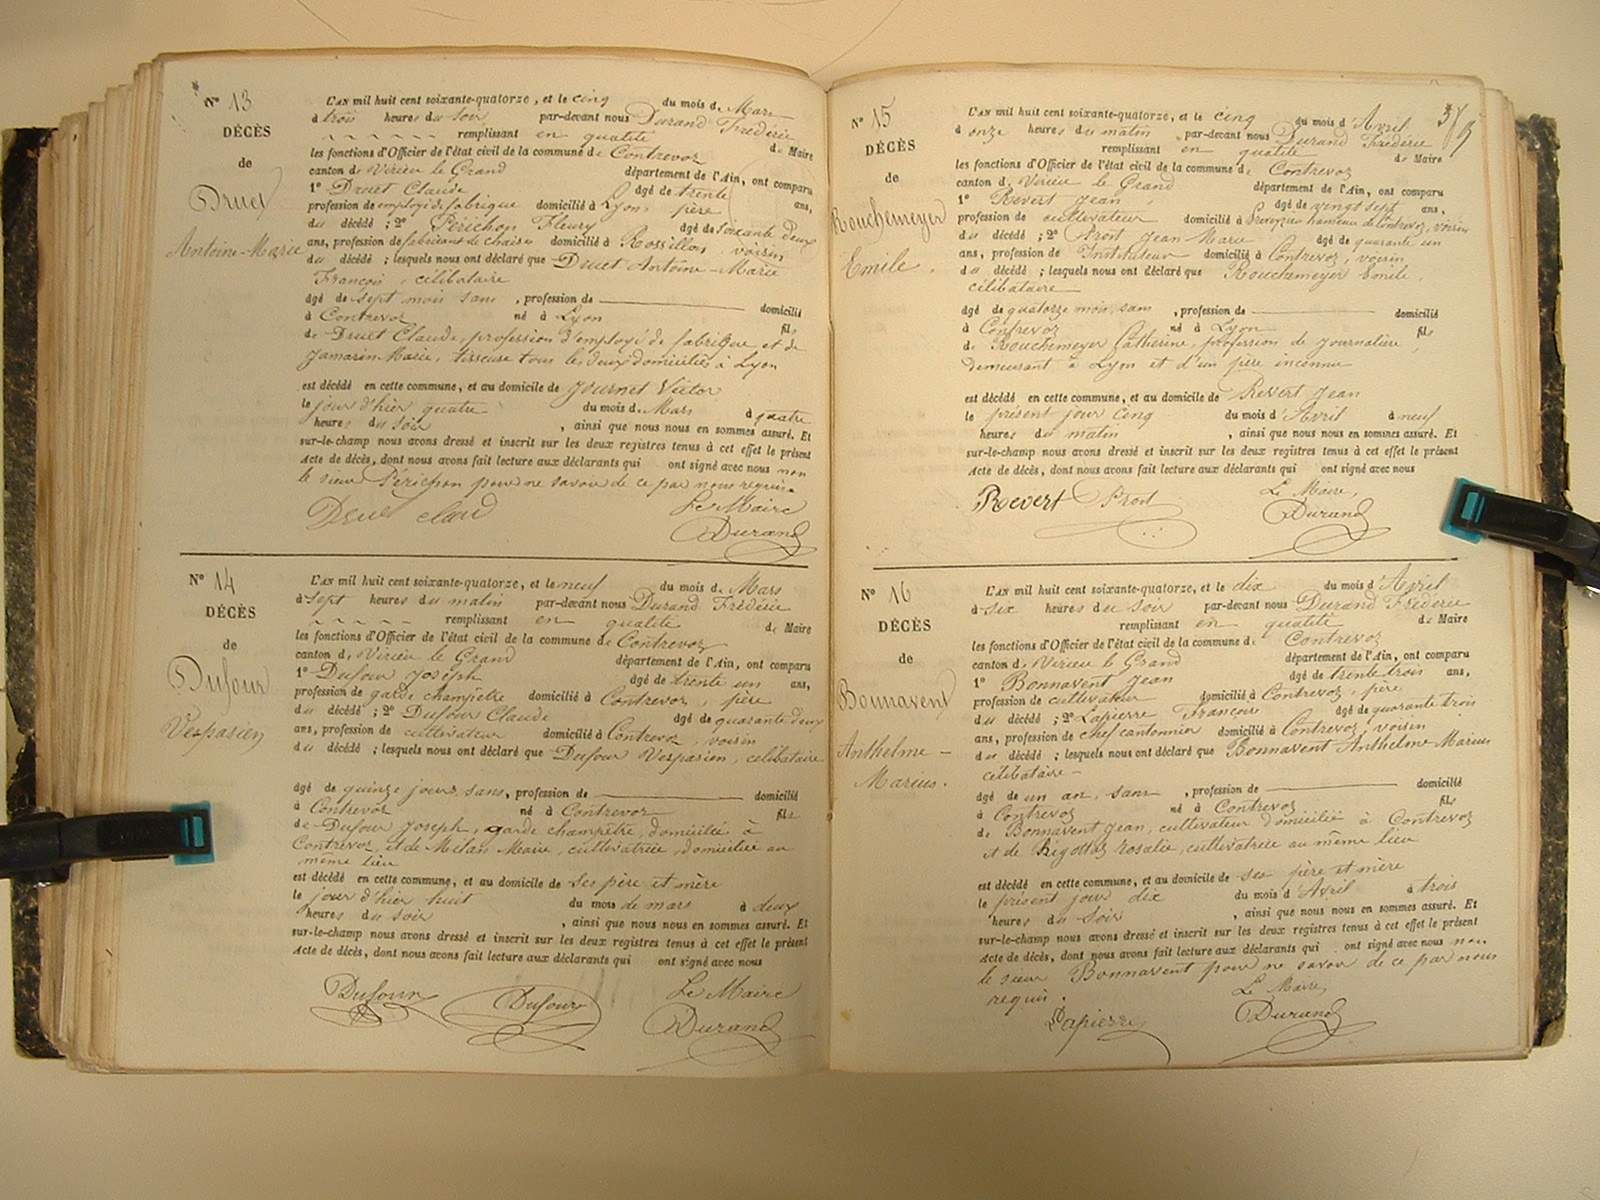 N° 13
DÉCÈS
de
Druet
Antoine-Marie
L'AN mil huit cent soixante-quatorze, et le cinq du mois de Mars
à trois heures du soir par-devant nous Durand Fréderic
remplissant en qualité de Maire
les fonctions d'Officier de l'état civil de la commune de Contrevoz
canton de Virieu le Grand département de l'Ain, ont comparu
1° Druet Claude âgé de trente ans,
profession de employé de fabrique domicilié à Lyon, père
du décédé ; 2° Périchon Fleury âgé de soixante deux
ans, profession de fabricant de chaises domicilié à Rossillon, voisin
du décédé ; lesquels nous ont déclaré que Druet Antoine-Marie
François, célibataire
âgé de sept mois sans, profession de domicilié
à Contrevoz né à Lyon fils
de Druet Claude, profession d'employé de fabrique et de
Jamarin Marie, tisseuse tous les deux domiciliés à Lyon
est décédé en cette commune, et au domicile de Journet Victor
le jour d'hier quatre du mois de Mars à quatre
heures du soir, ainsi que nous nous en sommes assuré. Et
sur-le-champ nous avons dressé et inscrit sur les deux registres tenus à cet effet le présent
acte de décès, dont nous avons fait lecture aux déclarants qui ont signé avec nous non
le sieur Périchon pour ne savoir de ce par nous requis
Druet claud
Le Maire
Durand
N° 14
DÉCÈS
de
Dufour
Vespasien
L'AN mil huit cent soixante-quatorze, et le neuf du mois de Mars
à sept heures du matin par-devant nous Durand Fréderic
remplissant en qualité de Maire
les fonctions d'Officier de l'état civil de la commune de Contrevoz
canton de Virieu le Grand département de l'Ain, ont comparu
1° Dufour Joseph âgé de trente un ans,
profession de garde champêtre domicilié à Contrevoz, père
du décédé ; 2° Dufour Claude âgé de quarante deux
ans, profession de cultivateur domicilié à Contrevoz, voisin
du décédé ; lesquels nous ont déclaré que Dufour Vespasien, célibataire
âgé de quinze jours, sans, profession de domicilié
à Contrevoz né à Contrevoz fils
de Dufour Joseph, garde champêtre, domicilié à
Contrevoz, et de Milan Marie, cultivatrice, domiciliée au
même lieu
est décédé en cette commune, et au domicile de ses père et mère
le jour d'hier huit du mois de mars à deux
heures du soir, ainsi que nous nous en sommes assuré. Et
sur-le-champ nous avons dressé et inscrit sur les deux registres tenus à cet effet le présent
acte de décès, dont nous avons fait lecture aux déclarants qui ont signé avec nous
Dufour Dufour
Le Maire
Durand
N° 15
DÉCÈS
de
Rouchemeyer
Emile.
L'AN mil huit cent soixante-quatorze, et le cinq du mois d'Avril
à onze heures du matin par-devant nous Durand Fréderic
remplissant en qualité de Maire
les fonctions d'Officier de l'état civil de la commune de Contrevoz
canton de Virieu le Grand département de l'Ain, ont comparu
1° Revert Jean, âgé de vingt sept ans,
profession de cultivateur domicilié à hameau de Contrevoz, voisin
du décédé ; 2° Prost Jean Marie âgé de quarante un
ans, profession de Instituteur domicilié à Contrevoz, voisin
du décédé ; lesquels nous ont déclaré que Rouchemeyer Emile,
célibataire
âgé de quatorze mois, sans, profession de domicilié
à Contrevoz né à Lyon fils
de Rouchemeyer Catherine, profession de journalière,
demeurant à Lyon et d'un père inconnu
est décédé en cette commune, et au domicile de Revert Jean
le présent jour cinq du mois d'Avril à neuf
heures du matin, ainsi que nous nous en sommes assuré. Et
sur-le-champ nous avons dressé et inscrit sur les deux registres tenus à cet effet le présent
acte de décès, dont nous avons fait lecture aux déclarants qui ont signé avec nous
Revert Prost
Le Maire,
Durand
N° 16
DÉCÈS
de
Bonnavent
Anthelme-
Marius.
L'AN mil huit cent soixante-quatorze, et le dix du mois d'Avril
à six heures du soir par-devant nous Durand Fréderic
remplissant en qualité de Maire
les fonctions d'Officier de l'état civil de la commune de Contrevoz
canton de Virieu le Grand département de l'Ain, ont comparu
1° Bonnavent Jean âgé de trente trois ans,
profession de cultivateur domicilié à Contrevoz, père
du décédé ; 2° Lapierre François âgé de quarante trois
ans, profession de chef cantonnier domicilié à Contrevoz, voisin
du décédé ; lesquels nous ont déclaré que Bonnavent Anthelme Marius
célibataire
âgé de un an, sans, profession de domicilié
à Contrevoz né à Contrevoz fils
de Bonnavent Jean, cultivateur domicilié à Contrevoz
et de Rigottaz rosalie, cultivatrice au même lieu
est décédé en cette commune, et au domicile de ses père et mère
le présent jour dix du mois d'Avril à trois
heures du soir, ainsi que nous nous en sommes assuré. Et
sur-le-champ nous avons dressé et inscrit sur les deux registres tenus à cet effet le présent
acte de décès, dont nous avons fait lecture aux déclarants qui ont signé avec nous non
le sieur Bonnavent pour ne savoir de ce par nous
requis.
Le Maire,
Lapierre Durand